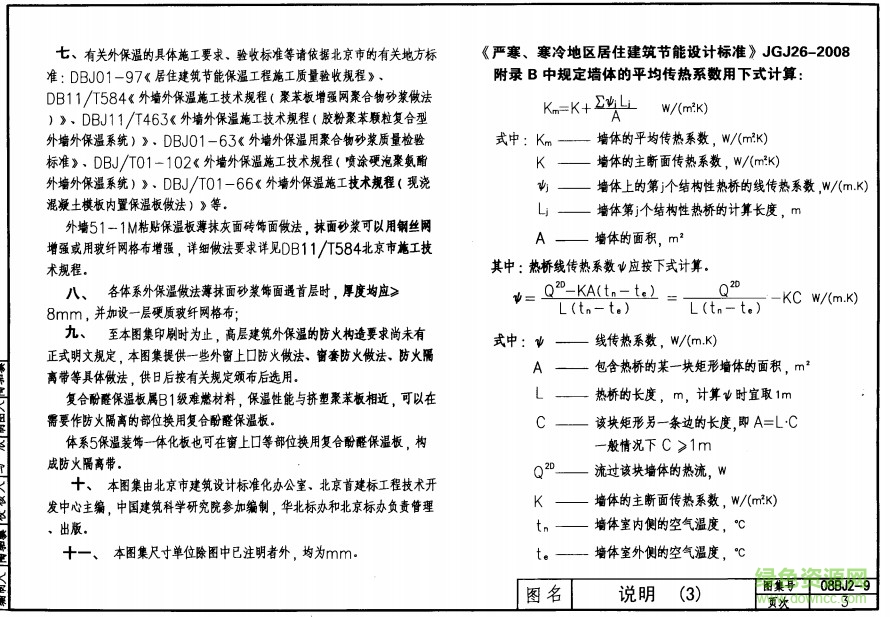 七、有关外保温的具体施工要求、验收标准等请依据北京市的有关地方标
准：DBJ01-97《居住建筑节能保温工程施工质量验收规程》、
DB11/T584《外墙外保温施工技术规程（聚苯板增强网聚合物砂浆做法
）》、DBJ11/T463《外墙外保温施工技术规程（胶粉聚苯颗粒复合型
外墙外保温系统）》、DBJ01-63《外墙外保温用聚合物砂浆质量检验
标准》、DBJ/T01-102《外墙外保温施工技术规程（喷涂硬泡聚氨酯
外墙外保温系统）》、DBJ/T01-66《外墙外保温施工技术规程（现浇
混凝土模板内置保温板做法）》等。
外墙51-1M粘贴保温板薄抹灰面砖饰面做法，抹面砂浆可以用钢丝网
增强或用玻纤网格布增强，详细做法要求详见DB11/T584北京市施工技
术规程。
八、 各体系外保温做法薄抹面砂浆饰面遇首层时，厚度均应≥
8mm，并加设一层硬质玻纤网格布；
九、 至本图集印刷时为止，高层建筑外保温的防火构造要求尚未有
正式明文规定，本图集提供一些外窗上口防火做法、窗套防火做法、防火隔
离带等具体做法，供日后按有关规定颁布后选用。
复合酚醛保温板属B1级难燃材料，保温性能与挤塑聚苯板相近，可以在
需要作防火隔离的部位换用复合酚醛保温板。
体系5保温装饰一体化板也可在窗上口等部位换用复合酚醛保温板，构
成防火隔离带。
十、 本图集由北京市建筑设计标准化办公室、北京首建标工程技术开
发中心主编，中国建筑科学研究院参加编制，华北标办和北京标办负责管理
、出版。
十一、 本图集尺寸单位除图中已注明者外，均为mm。
《严寒、寒冷地区居住建筑节能设计标准》JGJ26-2008
附录B中规定墙体的平均传热系数用下式计算：
Km=K+ ΣψjLj/A W/(m²K)
式中：Km —— 墙体的平均传热系数，W/(m²K)
K —— 墙体的主断面传热系数，W/(m²K)
ψj —— 墙体上的第j个结构性热桥的线传热系数,W/(m.K)
Lj —— 墙体第j个结构性热桥的计算长度，m
A —— 墙体的面积，m²
其中：热桥线传热系数ψ应按下式计算。
ψ= Q²ᴰ-KA(tn-te)/L(tn-te) = Q²ᴰ/L(tn-te) -KC W/(m.K)
式中：ψ —— 线传热系数，W/(m.K)
A —— 包含热桥的某一块矩形墙体的面积，m²
L —— 热桥的长度，m，计算ψ时宜取1m
C —— 该块矩形另一条边的长度,即A=L·C
一般情况下C≥1m
Q²ᴰ —— 流过该块墙体的热流，W
K —— 墙体的主断面传热系数，W/(m²K)
tn —— 墙体室内侧的空气温度，℃
te —— 墙体室外侧的空气温度，℃
图名 说明 (3) 图集号 08BJ2-9
页次 3
绿色资源网
www.downcc.com